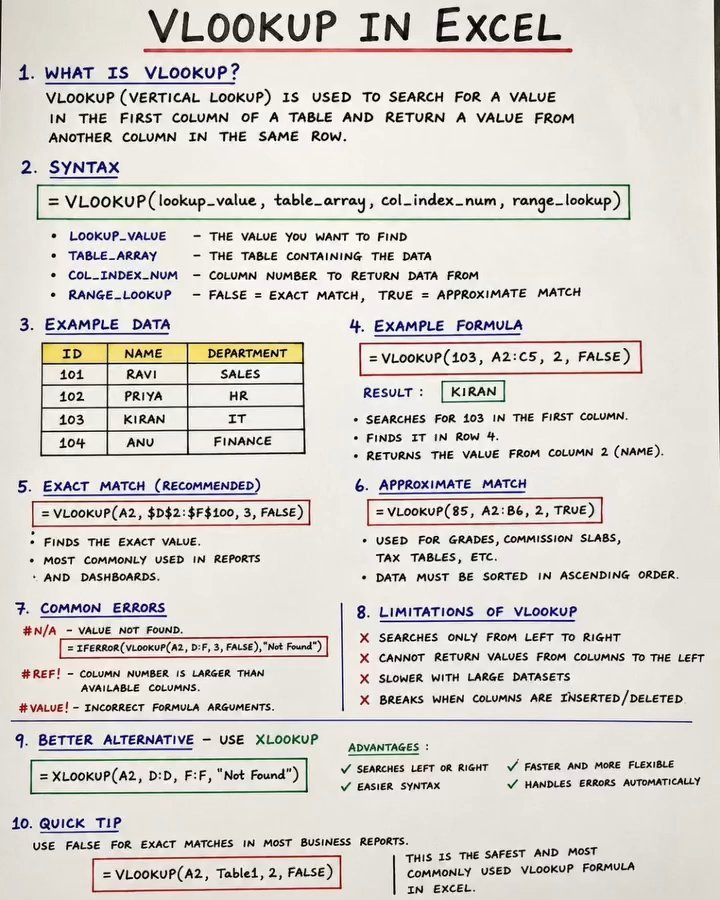 VLOOKUP IN EXCEL
1. WHAT IS VLOOKUP?
VLOOKUP (VERTICAL LOOKUP) IS USED TO SEARCH FOR A VALUE
IN THE FIRST COLUMN OF A TABLE AND RETURN A VALUE FROM
ANOTHER COLUMN IN THE SAME ROW.
2. SYNTAX
= VLOOKUP(lookup_value, table_array, col_index_num, range_lookup)
• LOOKUP_VALUE – THE VALUE YOU WANT TO FIND
• TABLE_ARRAY – THE TABLE CONTAINING THE DATA
• COL_INDEX_NUM – COLUMN NUMBER TO RETURN DATA FROM
• RANGE_LOOKUP – FALSE = EXACT MATCH, TRUE = APPROXIMATE MATCH
3. EXAMPLE DATA
ID NAME DEPARTMENT
101 RAVI SALES
102 PRIYA HR
103 KIRAN IT
104 ANU FINANCE
4. EXAMPLE FORMULA
= VLOOKUP(103, A2:C5, 2, FALSE)
RESULT : KIRAN
• SEARCHES FOR 103 IN THE FIRST COLUMN.
• FINDS IT IN ROW 4.
• RETURNS THE VALUE FROM COLUMN 2 (NAME).
5. EXACT MATCH (RECOMMENDED)
= VLOOKUP(A2, $D$2:$F$100, 3, FALSE)
• FINDS THE EXACT VALUE.
• MOST COMMONLY USED IN REPORTS
• AND DASHBOARDS.
6. APPROXIMATE MATCH
= VLOOKUP(85, A2:B6, 2, TRUE)
• USED FOR GRADES, COMMISSION SLABS,
TAX TABLES, ETC.
• DATA MUST BE SORTED IN ASCENDING ORDER.
7. COMMON ERRORS
#N/A – VALUE NOT FOUND.
= IFERROR(VLOOKUP(A2, D:F, 3, FALSE),"Not Found")
#REF! – COLUMN NUMBER IS LARGER THAN
AVAILABLE COLUMNS.
#VALUE! – INCORRECT FORMULA ARGUMENTS.
8. LIMITATIONS OF VLOOKUP
X SEARCHES ONLY FROM LEFT TO RIGHT
X CANNOT RETURN VALUES FROM COLUMNS TO THE LEFT
X SLOWER WITH LARGE DATASETS
X BREAKS WHEN COLUMNS ARE INSERTED/DELETED
9. BETTER ALTERNATIVE – USE XLOOKUP
= XLOOKUP(A2, D:D, F:F, "Not Found")
ADVANTAGES :
✓ SEARCHES LEFT OR RIGHT
✓ EASIER SYNTAX
✓ FASTER AND MORE FLEXIBLE
✓ HANDLES ERRORS AUTOMATICALLY
10. QUICK TIP
USE FALSE FOR EXACT MATCHES IN MOST BUSINESS REPORTS.
= VLOOKUP(A2, Table1, 2, FALSE)
THIS IS THE SAFEST AND MOST
COMMONLY USED VLOOKUP FORMULA
IN EXCEL.